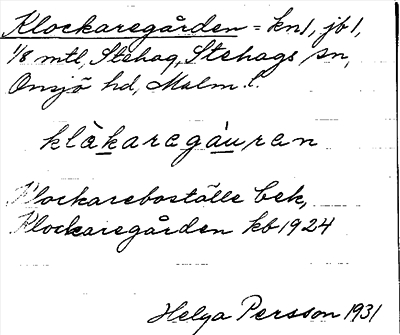 Klockaregården = kn1, jb1,
1/8 mtl, Stehag, Stehags sn,
Onsjö hd, Malm. l.
klåkaregåuren
Klockareboställe bek,
Klockaregården kb 1924
Helga Persson 1931